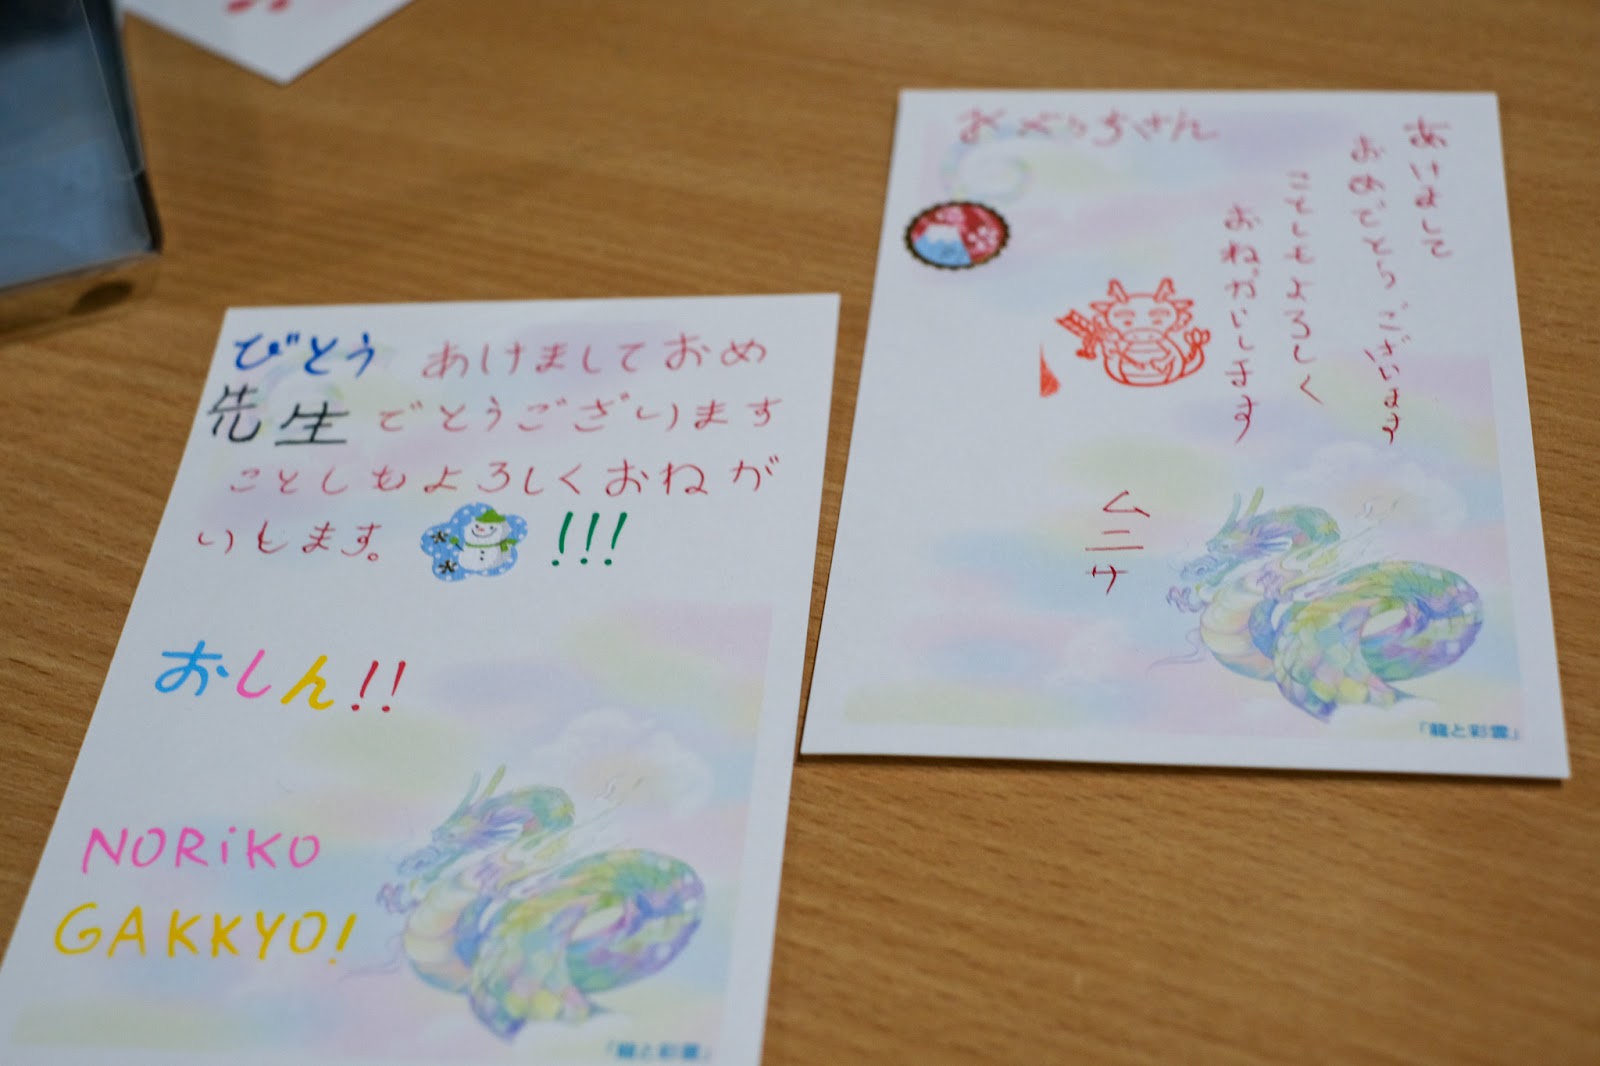 びとう あけましておめ
先生 でとうございます
ことしもよろしくおねが
いします。 !!!
おしん!!
NORiKO
GAKKYO!
「龍と彩雲」
あけまして
おめでとうございます
ことしもよろしく
おねがいします
ムニサ
「龍と彩雲」